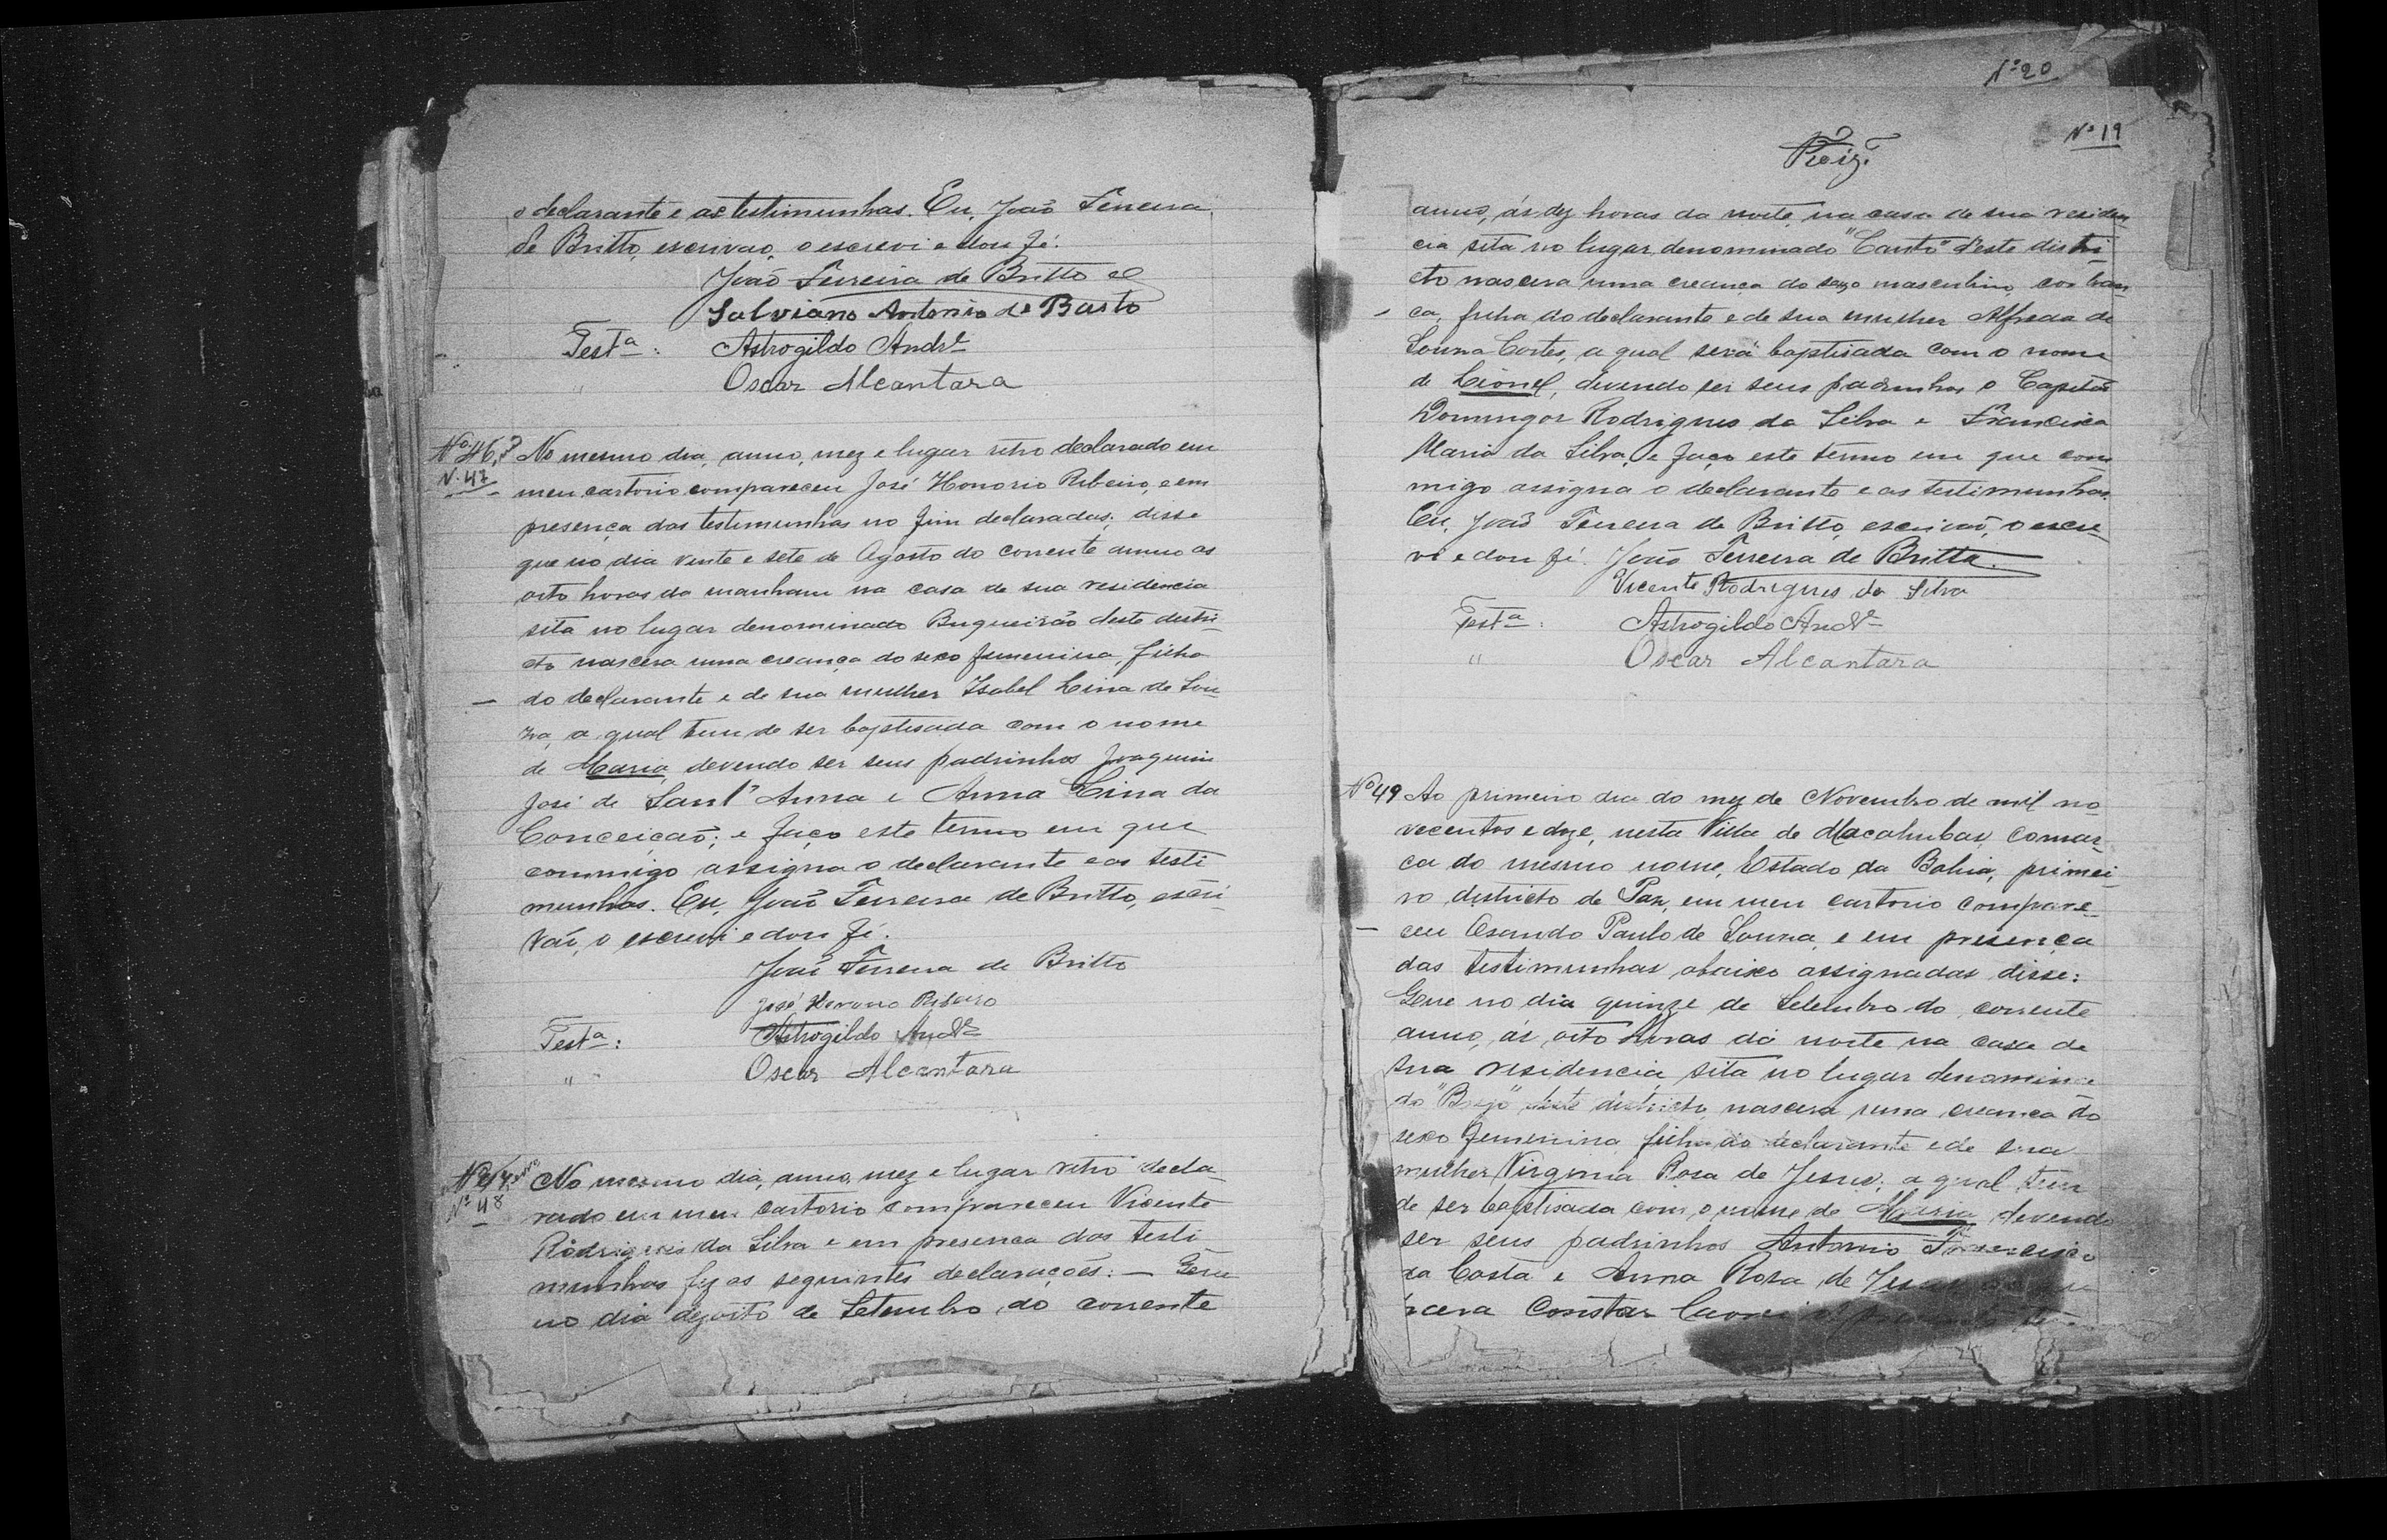 o declarante e as testimunhas. Eu, João Ferreira
de Britto, escrivao, o escrevi e dou fé.
João Ferreira de Britto
Salviano Antonio de Basto
Testª: Astrogildo Andrᵉ
" Oscar Alcantara
Nº 46,
N. 47
No mesmo dia, anno, mez e lugar retro declarado em
meu cartorio compareceu José Honorio Ribeiro, e em
presença das testimunhas no fim declaradas, disse
que no dia vinte e sete de Agosto do corrente anno as
oito horas da manham na casa de sua residencia
sita no lugar denominado Buqueirão deste distri-
cto nascera uma creança do sexo femenina, filha
do declarante e de sua mulher Isabel Lina de Sou-
za, a qual tem de ser baptisada com o nome
de Maria, devendo ser seus padrinhos Joaquim
José de Sant'Anna e Anna Lina da
Conceição; e faço este termo em que
commigo assigna o declarante e as testi
munhas. Eu, João Ferreira de Britto, escri-
vão, o escrevi e dou fé.
João Ferreira de Britto
José Honorio Ribeiro
Testª: Astrogildo Andrᵉ
" Oscar Alcantara
Nº 48
No mesmo dia, anno, mez e lugar retro decla-
rado em meu cartorio compareceu Vicente
Rodrigues da Silva e em presenca das testi
munhas fez as seguintes declarações: — Que
no dia dezoito de Setembro do corrente
Nº 20
Nº 19
anno, ás dez horas da noite, na casa de sua residen
cia sita no lugar denominado "Canto" d'este distri-
cto nascera uma creança do sexo masculino, cor bran-
ca, filha do declarante e de sua mulher Alfreda de
Souza Cortes, a qual será baptisada com o nome
de Lionel, devendo ser seus padrinhos o Capitão
Domingos Rodrigues da Silva e Francisca
Maria da Silva, e faço este termo em que com
migo assigna o declarante e as testimunhas.
Eu, João Ferreira de Britto, escrivão, o escre-
vi e dou fé. João Ferreira de Britto.
Vicente Rodrigues da Silva
Testª: Astrogildo Andrᵉ
" Oscar Alcantara
Nº 49
Ao primeiro dia do mez de Novembro de mil no
vecentos e doze, nesta Villa de Macahubas, comar-
ca do mesmo nome, Estado da Bahia, primei-
ro districto de Paz, em meu cartorio compare-
ceu Osando Paulo de Souza, e em presença
das testimunhas abaixo assignadas disse:
Que no dia quinze de Setembro do corrente
anno, ás oito horas da noite na casa de
sua residencia, sita no lugar denomina
do "Brejo" deste districto nascera uma creanca do
sexo femenina filha do declarante e de sua
mulher Virginia Rosa de Jesus; a qual tem
de ser baptisada com o nome de Maria, devendo
ser seus padrinhos Antonio Francisco
da Costa e Anna Rosa de Jesus
para constar lavrei